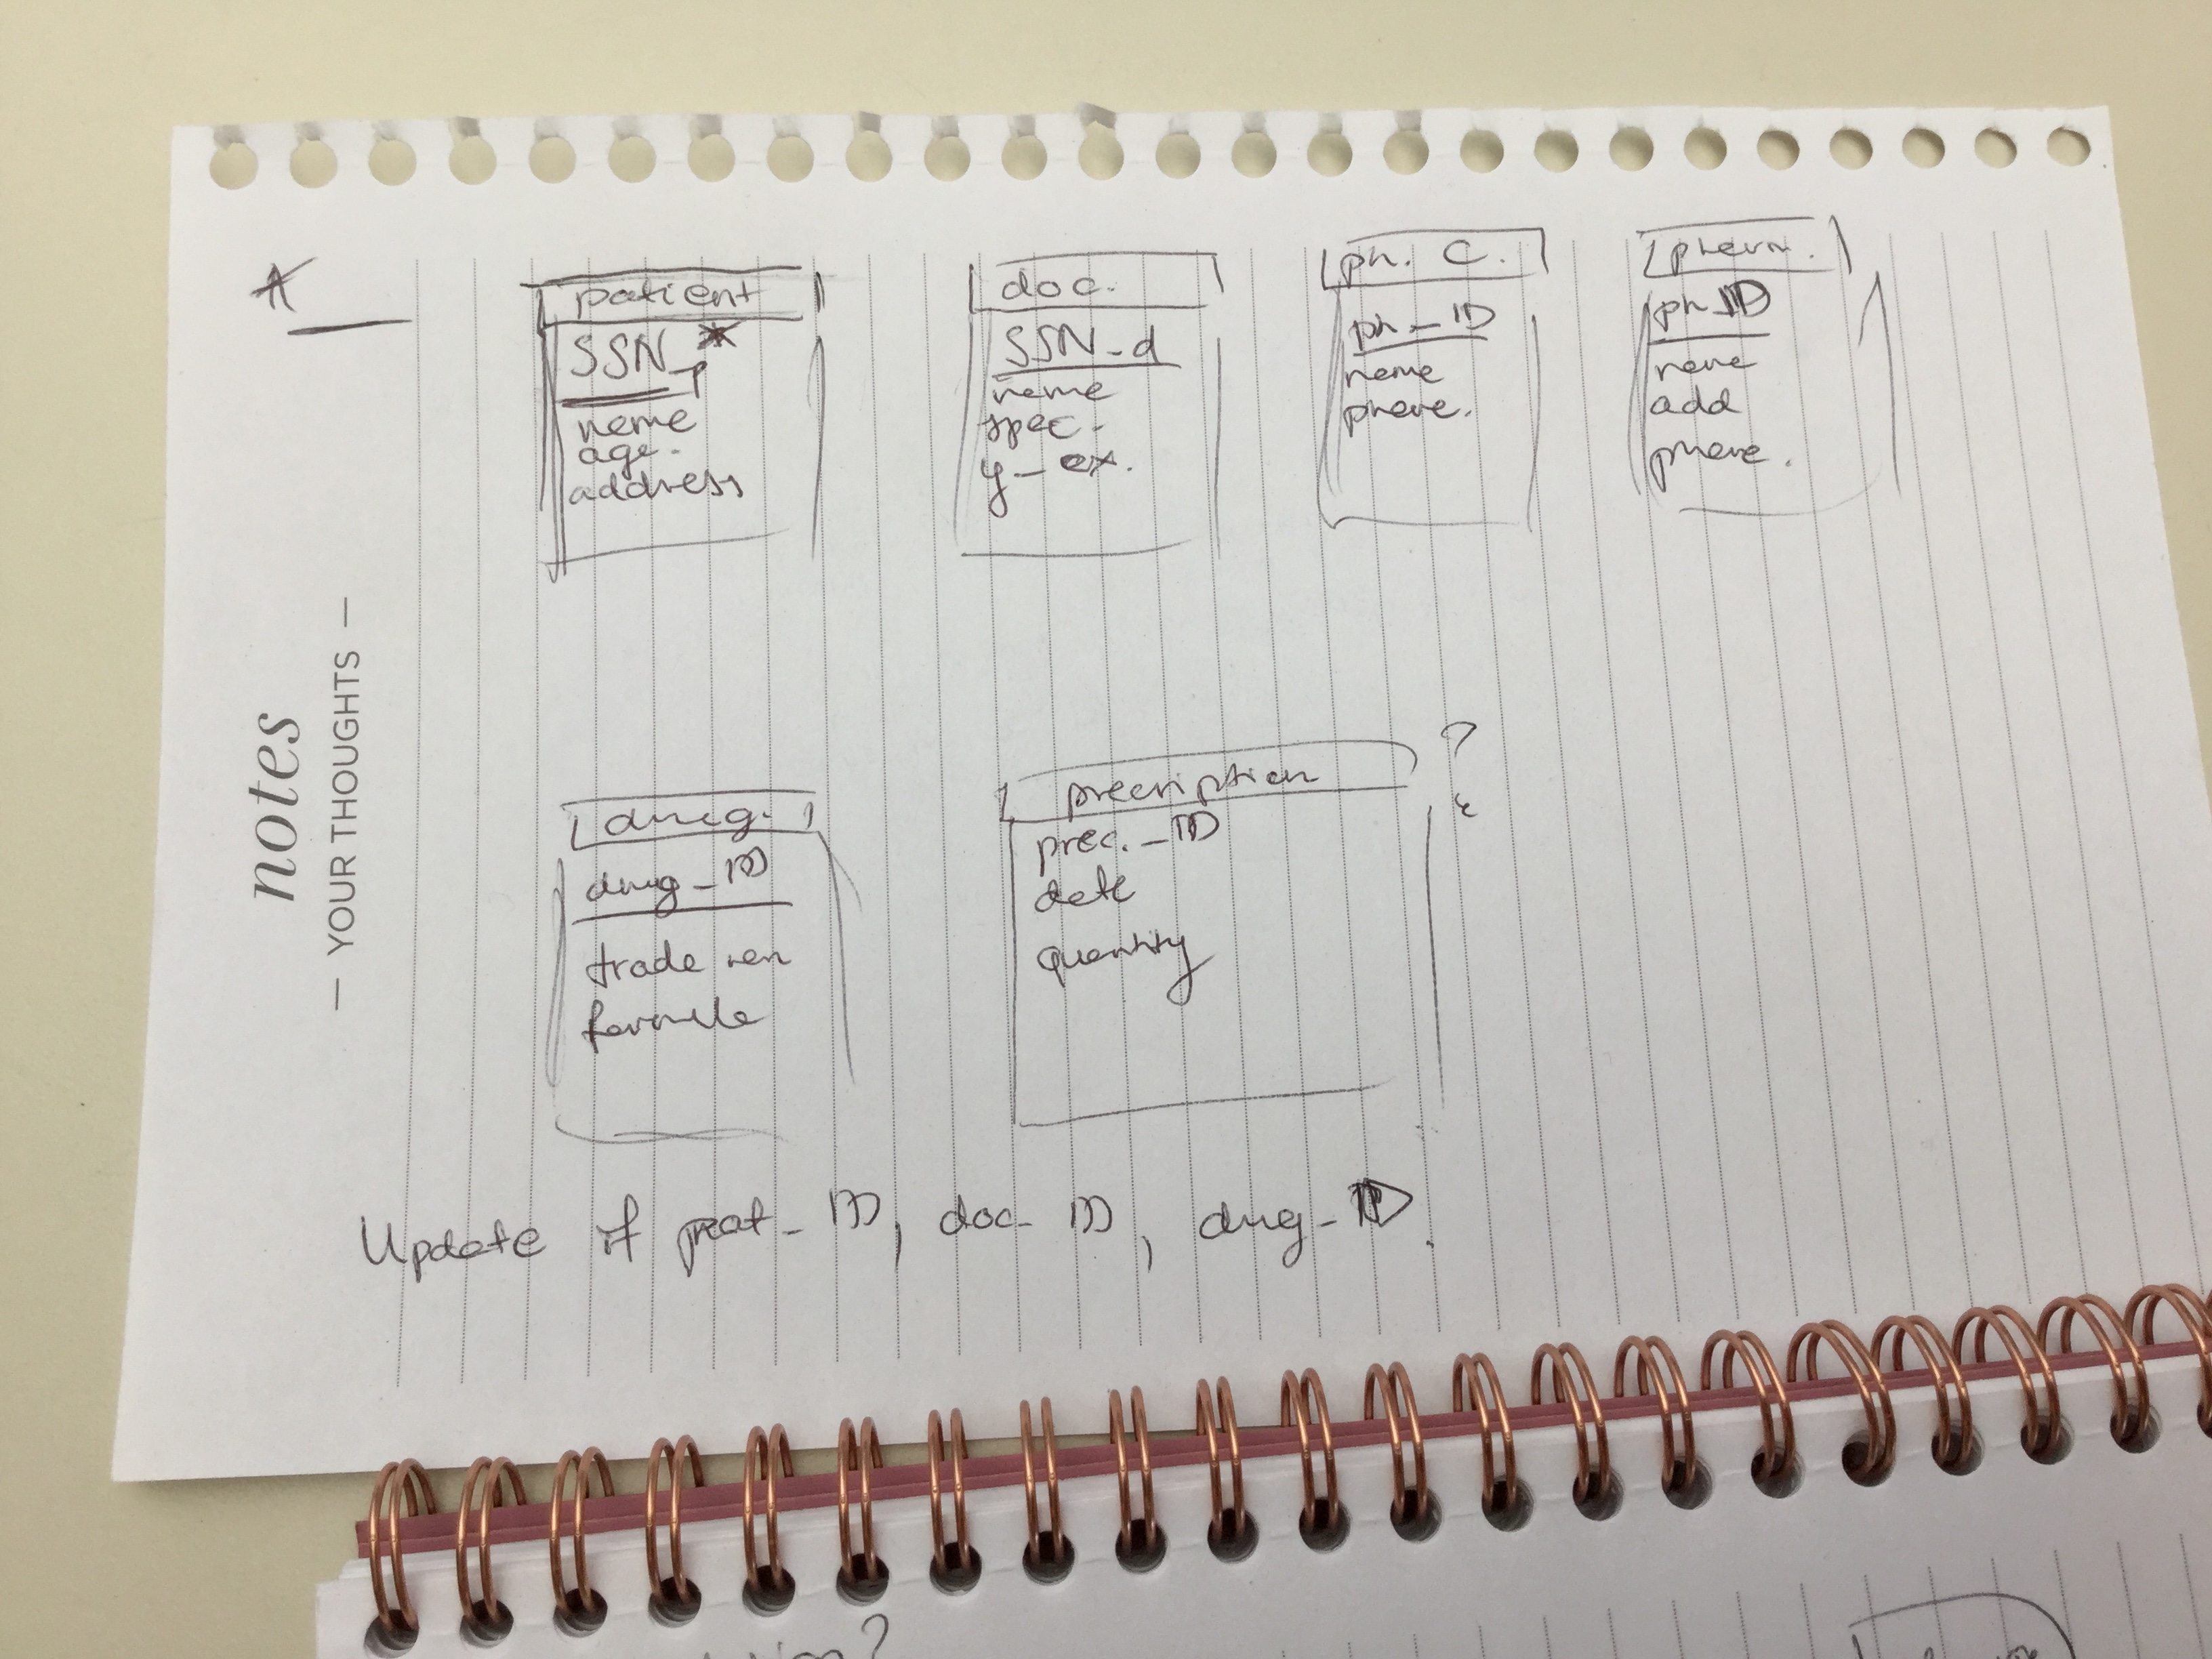 notes
— YOUR THOUGHTS —
patient
SSN
name
age.
address
doc.
SSN-d
name
spec.
y-ex.
ph. C.
ph-ID
name
phone.
pharm.
ph-ID
name
add
phone.
drug.
drug-ID
trade nen
formile
prescription
prec.-ID
date
quantity
?
Update if pat-ID, doc-ID, drug-ID.